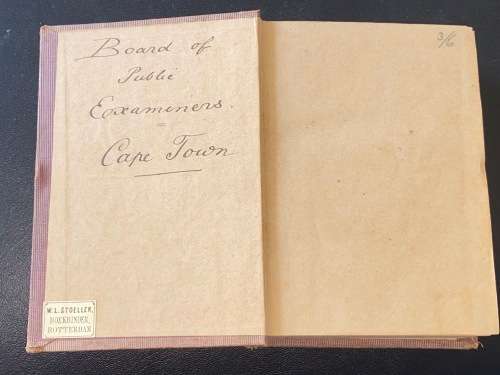 Board of
Public
Examiners.
Cape Town
3/6
W.L. STOELLER,
BOEKBINDER,
ROTTERDAM